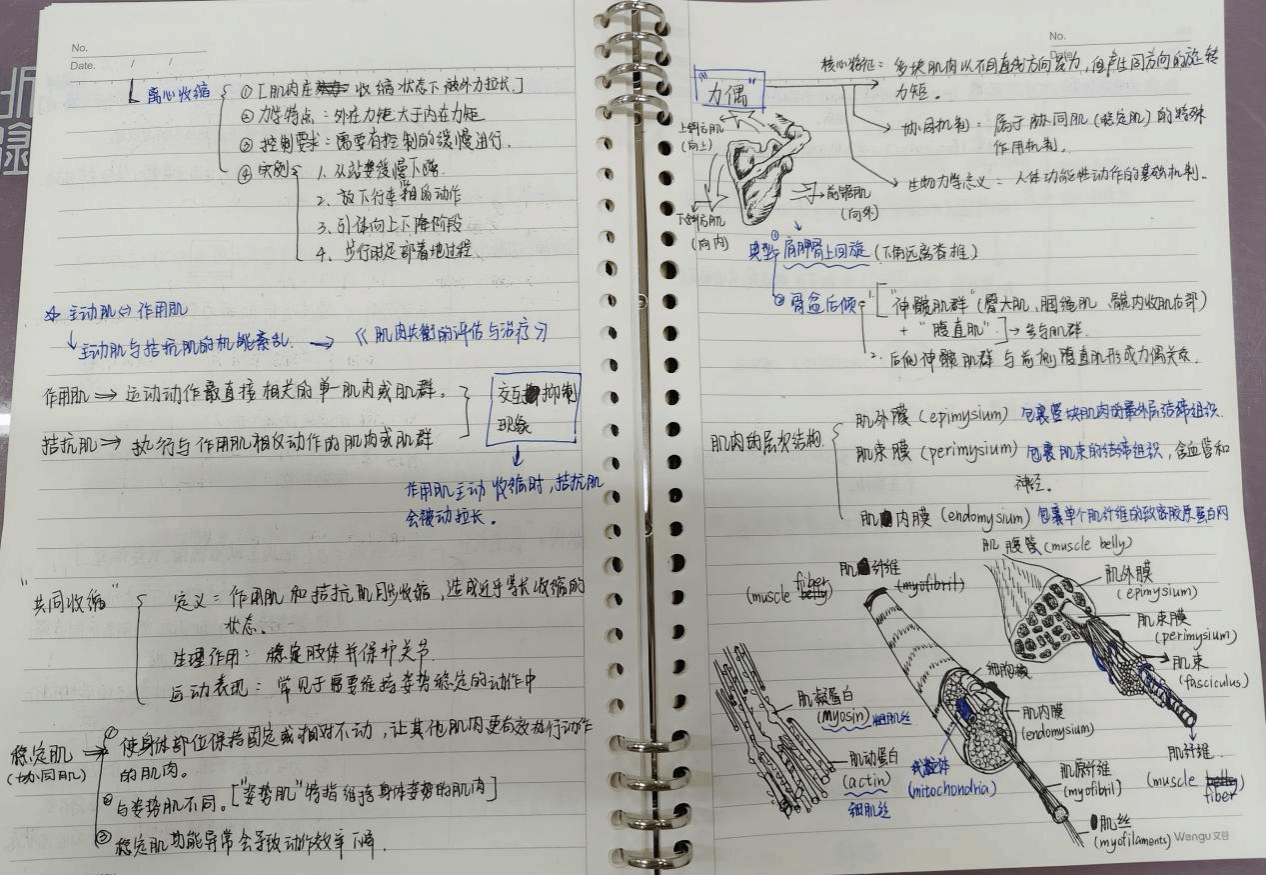 No.
Date. / /
离心收缩
① [肌肉在收缩状态下被外力拉长.]
② 力学特点：外在力矩大于内在力矩
③ 控制要求：需要有控制的缓慢进行.
④ 实例
1. 从站姿缓慢下蹲.
2. 放下行李箱的动作
3. 引体向上下降阶段
4. 步行时足部着地过程.
主动肌⇔作用肌
主动肌与拮抗肌的机能紊乱. → 《肌肉失衡的评估与治疗》
作用肌⇒运动动作最直接相关的单一肌肉或肌群.
拮抗肌⇒执行与作用肌相反动作的肌肉或肌群
交互抑制
现象
作用肌主动收缩时，拮抗肌
会被动拉长.
"共同收缩"
定义：作用肌和拮抗肌同步收缩，造成近乎等长收缩的
状态.
生理作用：稳定肢体并保护关节.
运动表现：常见于需要维持姿势稳定的动作中
稳定肌
(协同肌)
① 使身体部位保持固定或相对不动，让其他肌肉更有效执行动作
的肌肉。
② 与姿势肌不同。["姿势肌"特指维持身体姿势的肌肉]
③ 稳定肌功能异常会导致动作效率下降.
No.
Date.
"力偶"
核心特征：多块肌肉以不同直线方向发力，但产生同方向的旋转
力矩.
协同机制：属于协同肌(稳定肌)的特殊
作用机制.
生物力学意义：人体功能性动作的基础机制.
上斜方肌
(向上)
前锯肌
(向外)
下斜方肌
(向内)
典型
① 肩胛骨上回旋 (下角远离脊椎)
② 骨盆后倾
1. ["伸髋肌群"(臀大肌、腘绳肌、髋内收肌后部)
+ "腹直肌".]→参与肌群.
2. 后侧伸髋肌群与前侧腹直肌形成力偶关系.
肌肉的层次结构.
肌外膜(epimysium) 包裹整块肌肉的最外层结缔组织.
肌束膜(perimysium) 包裹肌束的结缔组织，含血管和
神经。
肌内膜(endomysium) 包裹单个肌纤维的致密胶原蛋白网
肌腹(muscle belly)
肌纤维
(muscle fiber belly) (myofibril)
肌外膜
(epimysium)
肌束膜
(perimysium)
肌束
(fasciculus)
细胞核
肌凝蛋白
(myosin) 粗肌丝
肌内膜
(endomysium)
肌动蛋白
(actin)
细肌丝
线粒体
(mitochondria)
肌原纤维
(myofibril)
肌纤维.
(muscle belly fiber)
肌丝
(myofilaments) Wengu 文谷